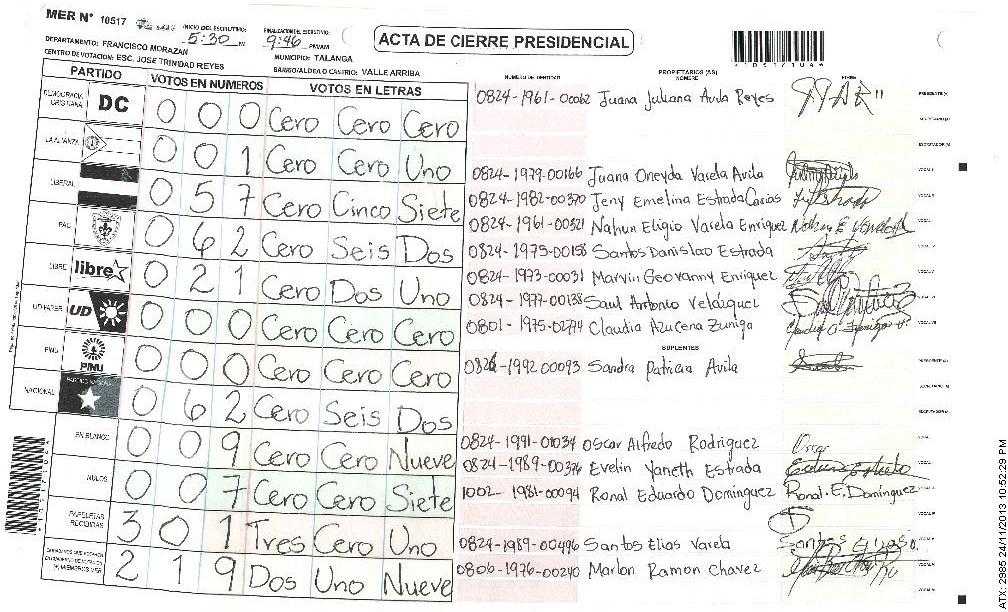 MER N° 10517
INICIO DEL ESCRUTINIO: 5:30 M
FINALIZACION DEL ESCRUTINIO: 9:46 PM/AM
ACTA DE CIERRE PRESIDENCIAL
DEPARTAMENTO: FRANCISCO MORAZAN
MUNICIPIO: TALANGA
CENTRO DE VOTACION: ESC. JOSE TRINIDAD REYES
BARRIO/ALDEA O CASTRIO: VALLE ARRIBA
PARTIDO VOTOS EN NUMEROS VOTOS EN LETRAS
NUMERO DE IDENTIDAD PROPIETARIOS (AS) NOMBRE FIRMA
DEMOCRACIA CRISTIANA DC 0 0 0 Cero Cero Cero
LA ALIANZA 0 0 1 Cero Cero Uno
LIBERAL 0 5 7 Cero Cinco Siete
PAC 0 6 2 Cero Seis Dos
LIBRE libre 0 2 1 Cero Dos Uno
UD-FAPER UD 0 0 0 Cero Cero Cero
PINU PINU 0 0 0 Cero Cero Cero
NACIONAL 0 6 2 Cero Seis Dos
EN BLANCO 0 0 9 Cero Cero Nueve
NULOS 0 0 7 Cero Cero Siete
PAPELETAS RECIBIDAS 3 0 1 Tres Cero Uno
2 1 9 Dos Uno Nueve
0824-1961-00062 Juana Juliana Avila Reyes
0824-1979-00166 Juana Oneyda Varela Avila
0824-1982-00370 Jeny Emelina Estrada Carias
0824-1961-00321 Nahun Eligio Varela Enriquez
0824-1975-00158 Santos Danislao Estrada
0824-1973-00031 Marvin Geovanny Enriquez
0824-1977-00138 Saul Antonio Velásquez
0801-1975-02774 Claudia Azucena Zuniga
SUPLENTES
0824-1992 00093 Sandra Patricia Avila
0824-1991-01034 Oscar Alfredo Rodriguez Oscar
0824-1989-00376 Evelin Yaneth Estrada
1002-1981-00094 Ronal Eduardo Dominguez Ronal. E. Domínguez
0824-1989-00496 Santos Elias Varela
0806-1976-00240 Marlon Ramon Chavez
ATX: 2985 24/11/2013 10:52:29 PM